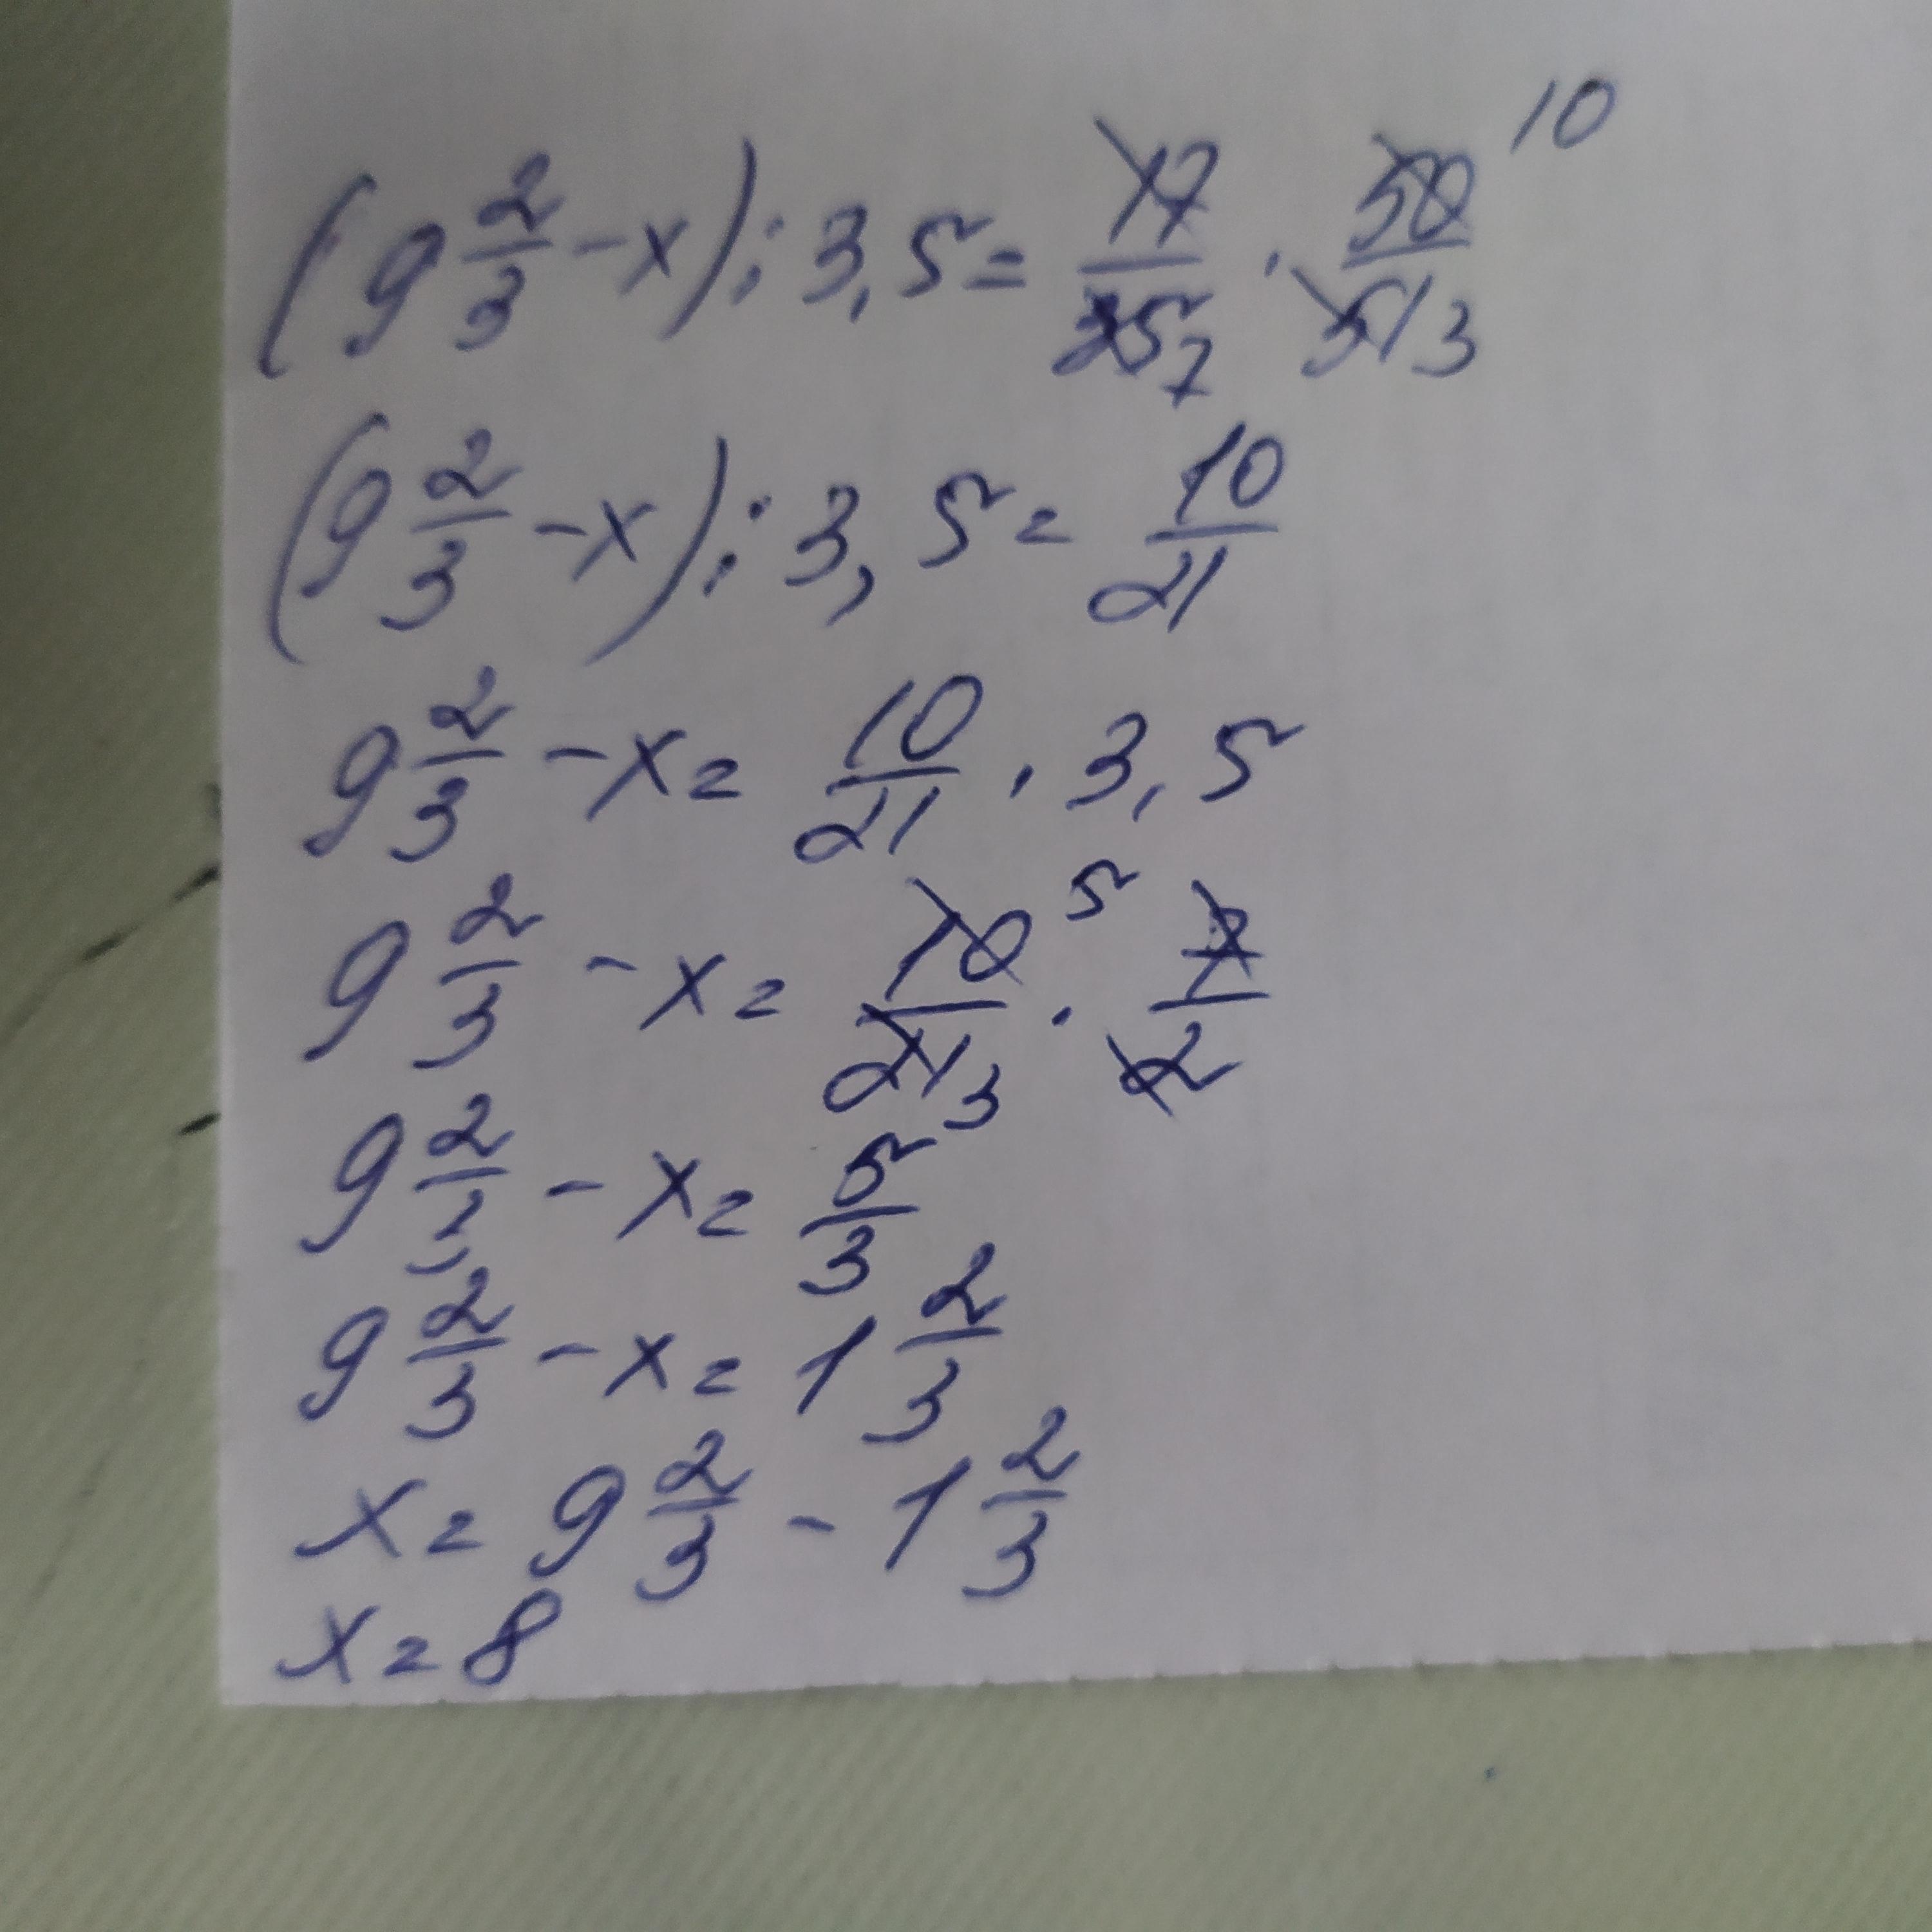 (9 2/3 - x) : 3,5 = 17/35 7 · 50/51 3 10
(9 2/3 - x) : 3,5 = 10/21
9 2/3 - x = 10/21 · 3,5
9 2/3 - x = 10/21 5 3 · 7/2
9 2/3 - x = 5/3
9 2/3 - x = 1 2/3
x = 9 2/3 - 1 2/3
x = 8